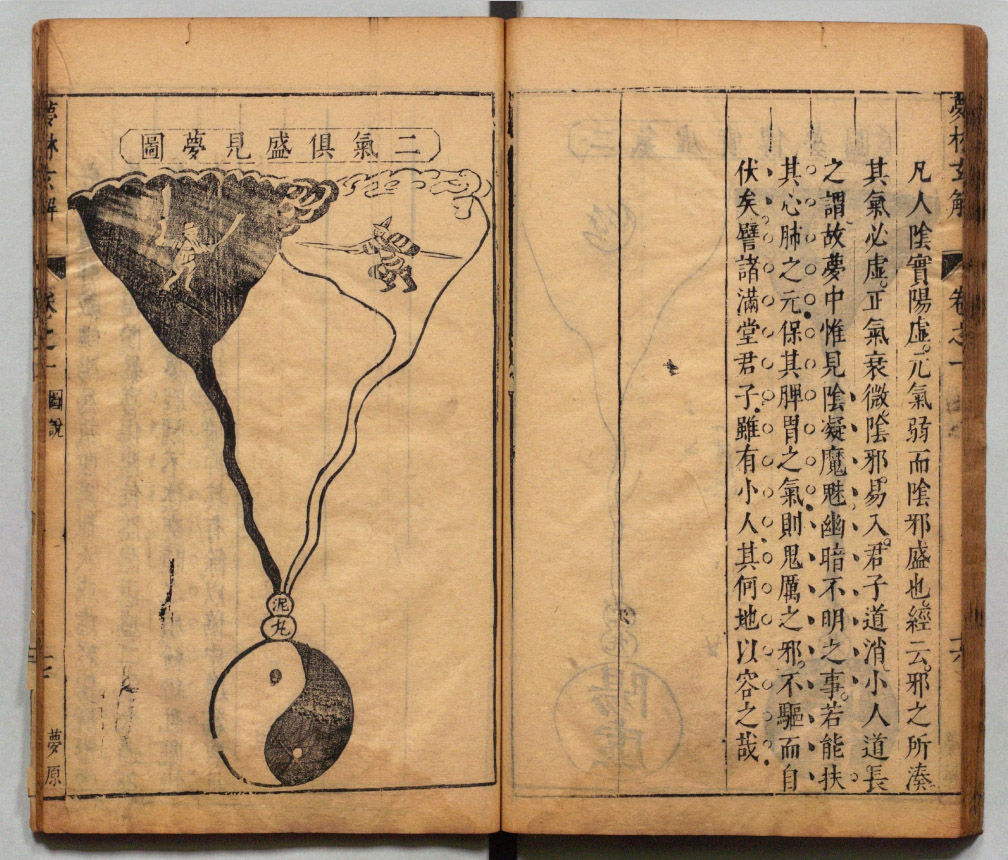 夢林玄解
卷之一
凡人陰實陽虛元氣弱而陰邪盛也經云邪之所湊
其氣必虛正氣衰微陰邪易入君子道消小人道長
之謂故夢中惟見陰凝魔魅幽暗不明之事若能扶
其心肺之元保其脾胃之氣則鬼厲之邪不驅而自
伏矣譬諸滿堂君子雖有小人其何地以容之哉
二氣俱盛見夢圖
泥
丸
夢林玄解
卷之一
圖說
十七
夢原